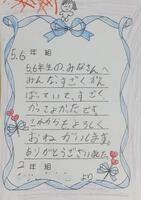 5.6年組
5.6年生のみなさんへ
みんな、すごくがん
ばっていて、すごく
かっこよかったです。
これからもよろしく
おねがいします。
ありがとうございました。
2年組
より